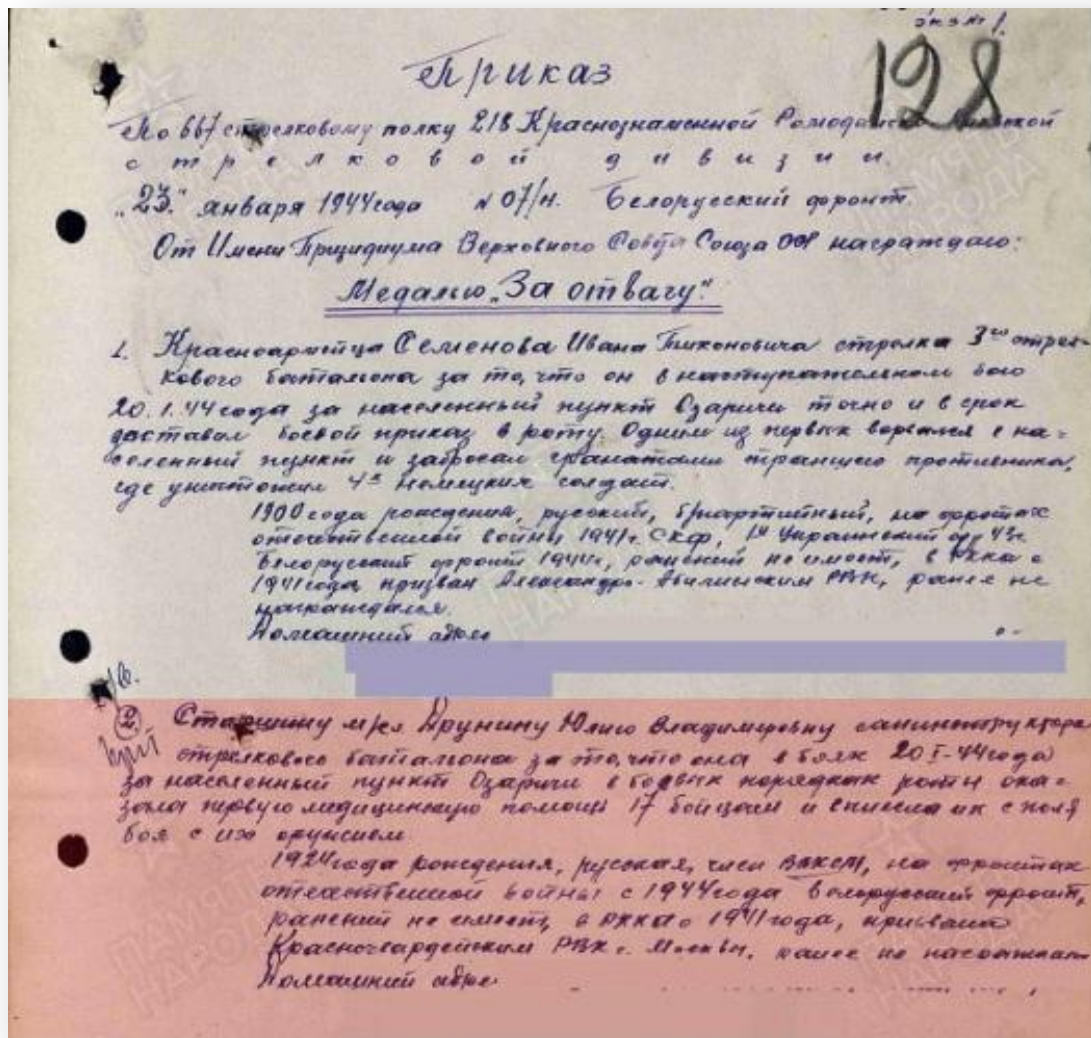 экз № 1.
128
Приказ
По 667 стрелковому полку 218 Краснознаменной Ромодано-
стрелковой дивизии.
"23." января 1944 года № 07/н. Белорусский фронт.
От Имени Президиума Верховного Совета Союза ССР награждаю:
Медалью "За отвагу".
1. Красноармейца Семенова Ивана Тихоновича стрелка 3го стрел-
кового батальона за то, что он в наступательном бою
20.1.44 года за населенный пункт Озаричи точно и в срок
доставал боевой приказ в роту. Одним из первых ворвался в на=
селенный пункт и забросал гранатами траншею противника,
где уничтожил 4х немецких солдат.
1900 года рождения, русский, б/партийный, на фронтах
отечественной войны 1941г. СКФ, 1й Украинский фр 43г.
Белорусский фронт 1944г., ранений не имеет, в РККА с
1941 года призван Александро- РВК, ранее не
награждался.
Домашний адрес
2. Старшину м/сл Друнину Юлию Владимировну санинструктора
стрелкового батальона за то, что она в боях 20-I-44 года
за населенный пункт Озаричи в боевых порядках роты ока=
зала первую медицинскую помощь 17 бойцам и вынесла их с поля
боя с их оружием
1924 года рождения, русская, член ВЛКСМ, на фронтах
отечественной войны с 1944 года Белорусский фронт,
ранений не имеет, в РККА с 1941 года, призвана
Красногвардейским РВК г. Москвы, ранее не награждалась
Домашний адрес
ПАМЯТЬ
НАРОДА